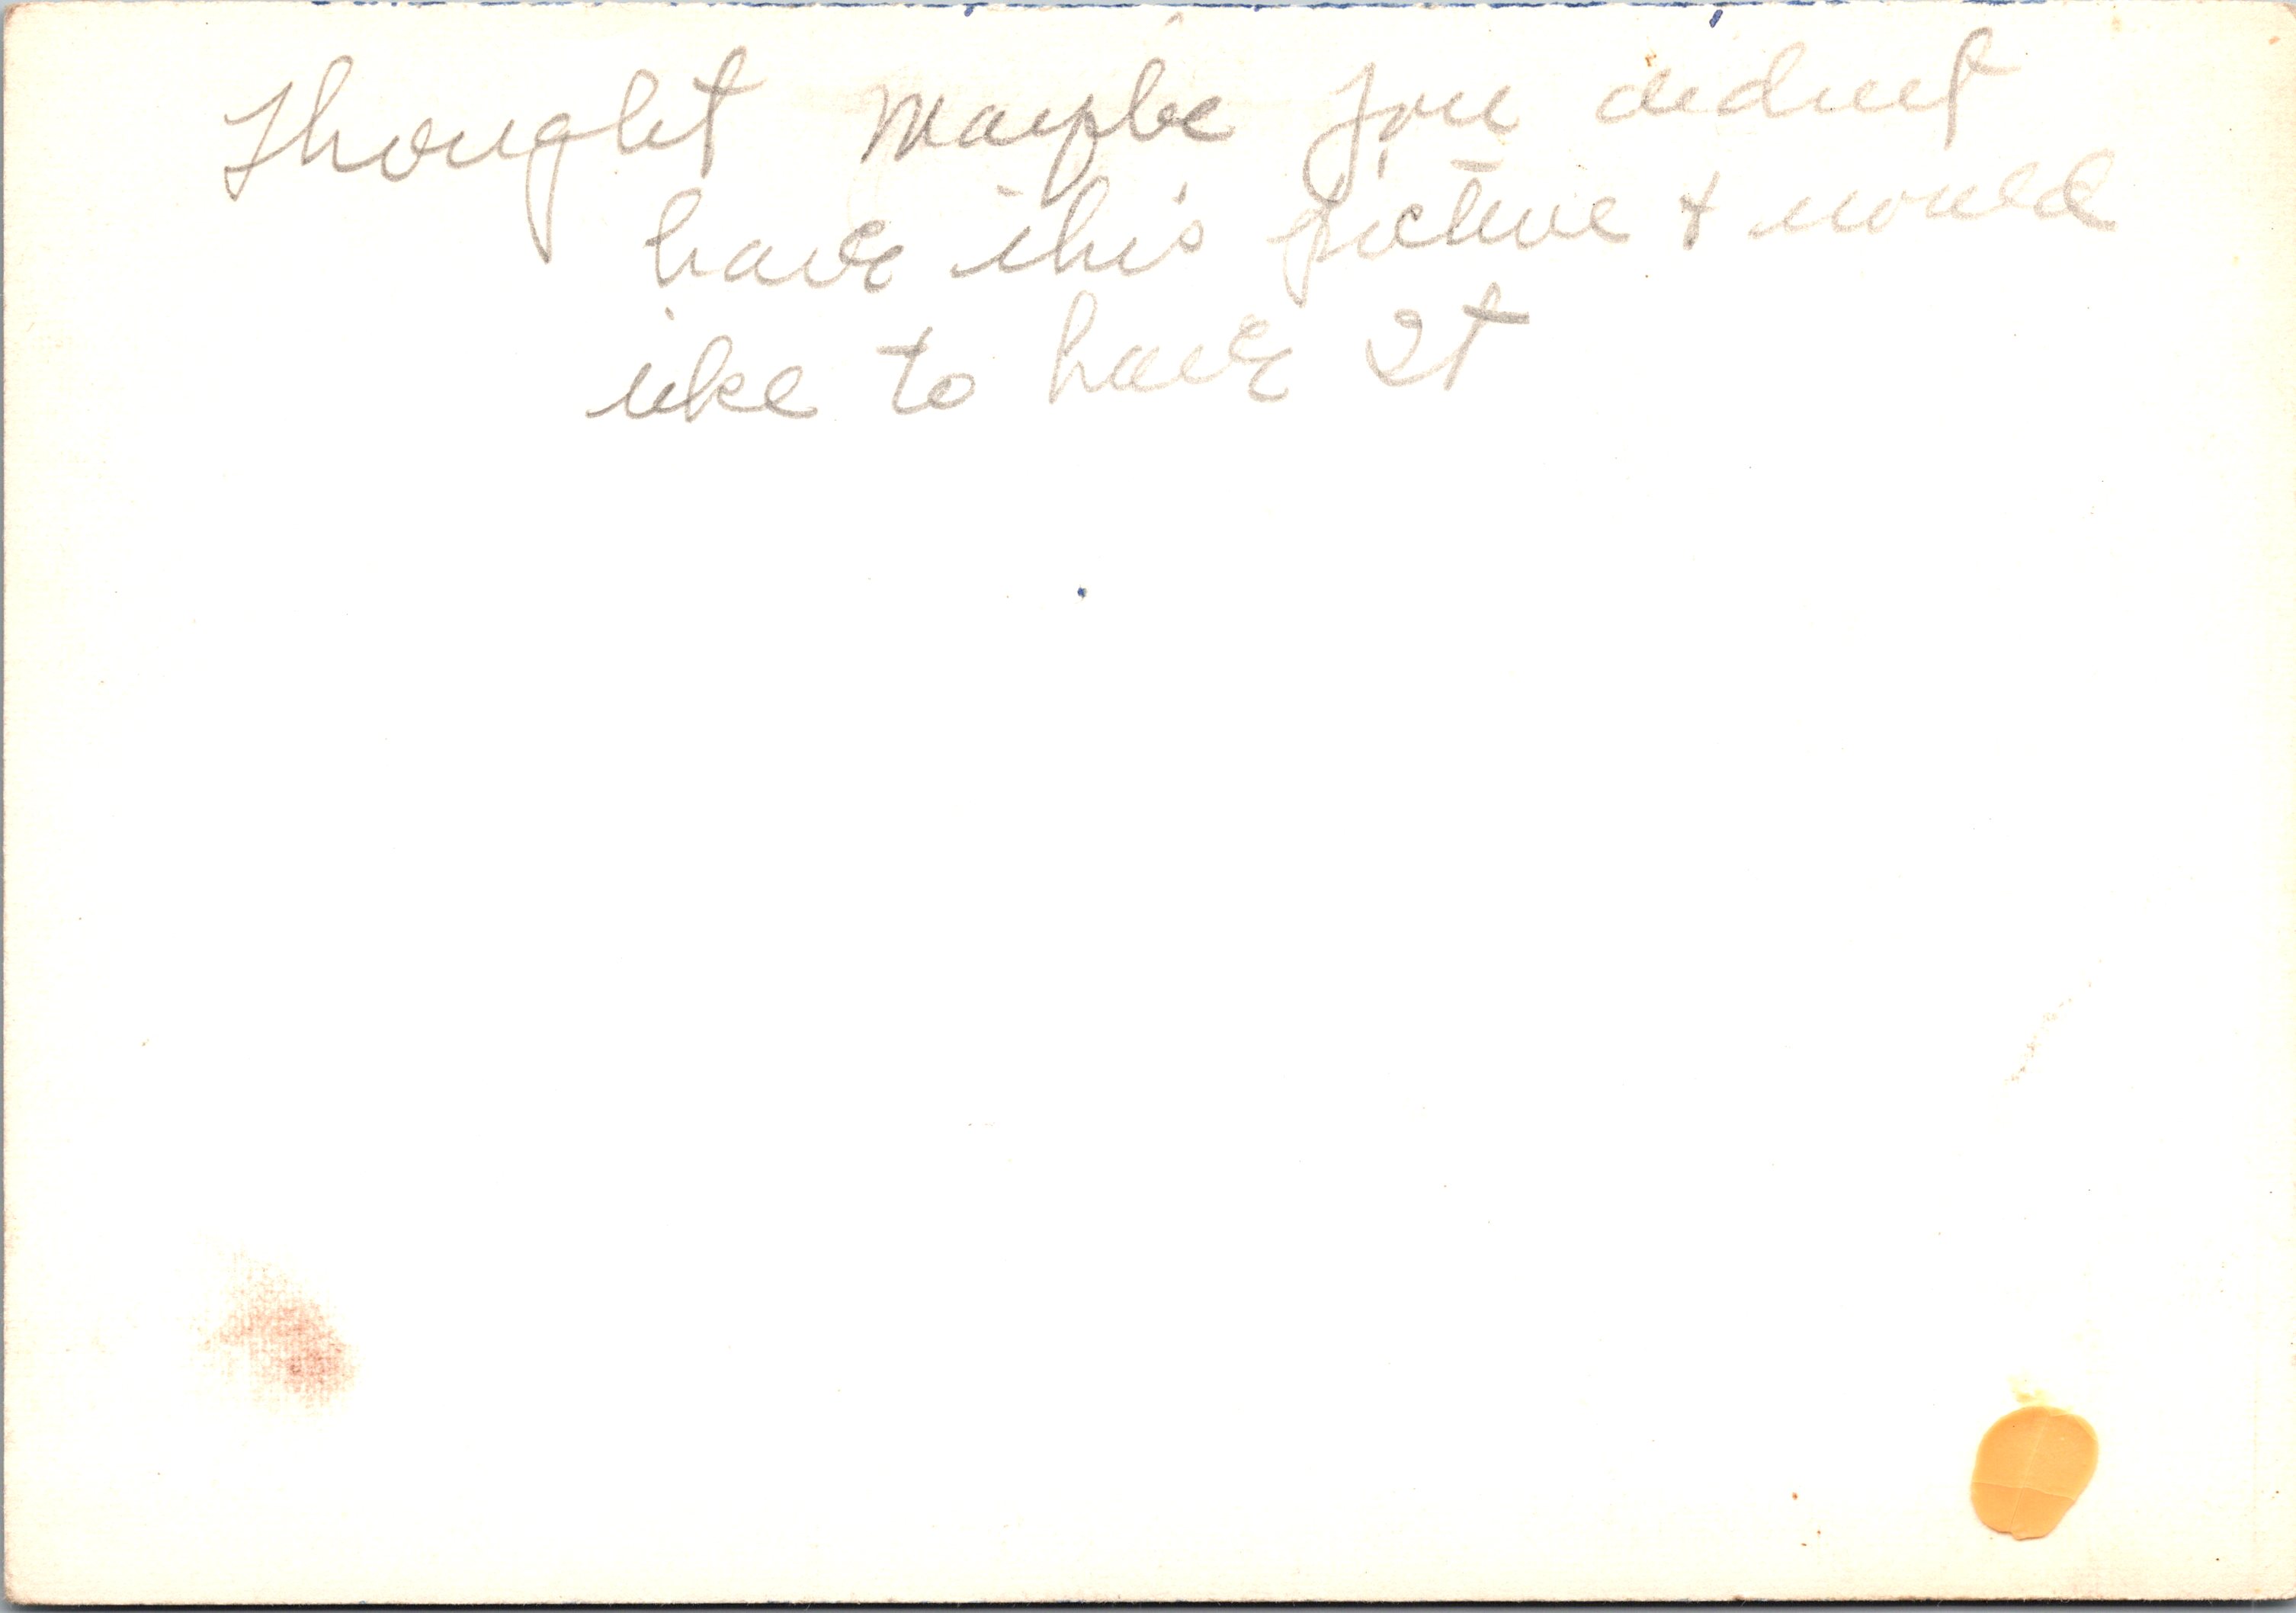 Thought maybe you didnt
have this picture & would
like to have it